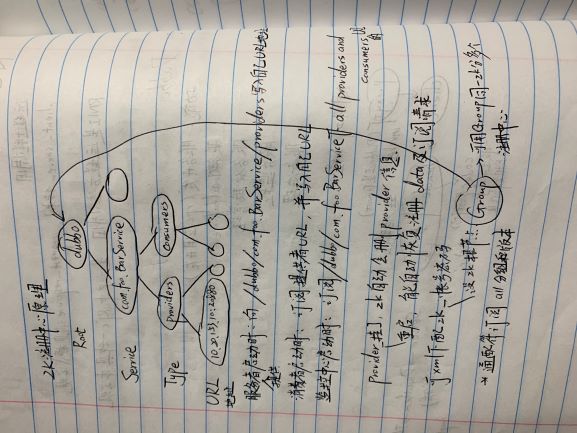 ZK注册中心原理
Root
dubbo
Service
com.foo.BarService
Type
Providers
Consumers
URL
地址
10.20.153.10:20880
服务者启动时:向/dubbo/com.foo.BarService/providers写入自己URL地址
消费者启动时:订阅提供者URL,并写入自己URL
监控中心启动时:订阅/dubbo/com.foo.BarService下all providers and
consumers
Provider挂了,zk自动会删provider信息.
重启,能自动恢复注册data及订阅请求
Group
可用Group同一zk分多个
注册中心
* 通配符订阅all分组和版本